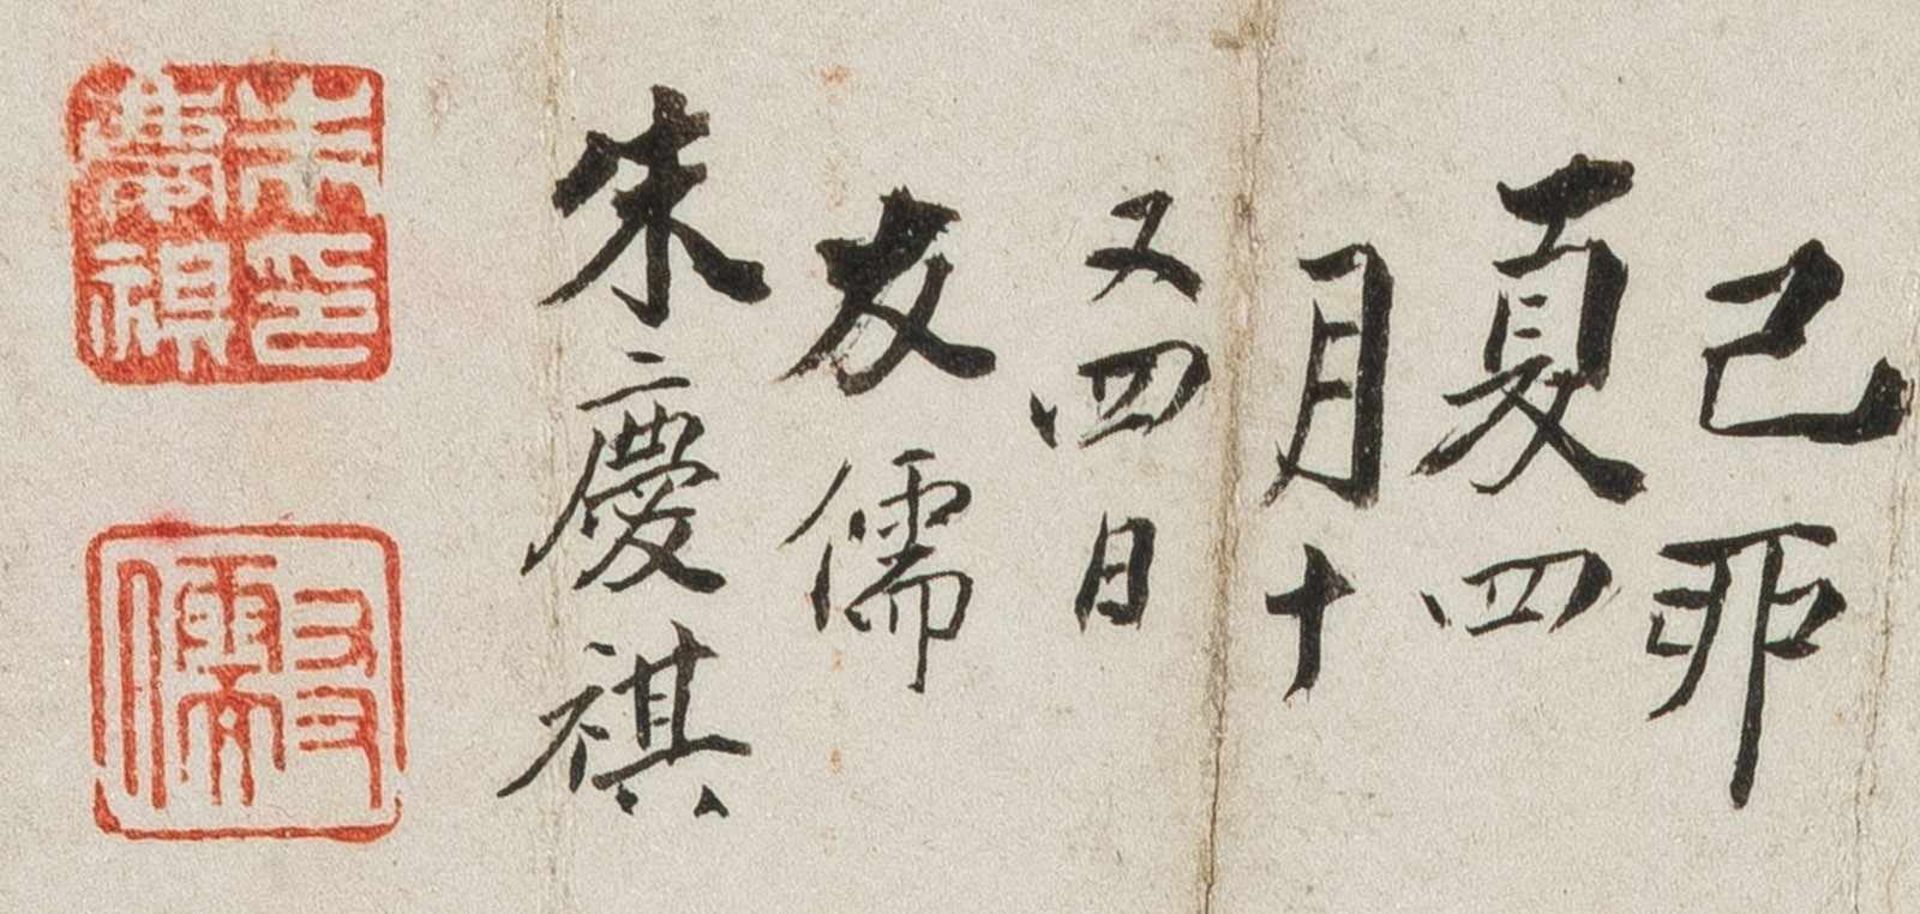 己卯
夏四
月十
又四日
友儒
朱慶祺
朱慶祺印
友儒